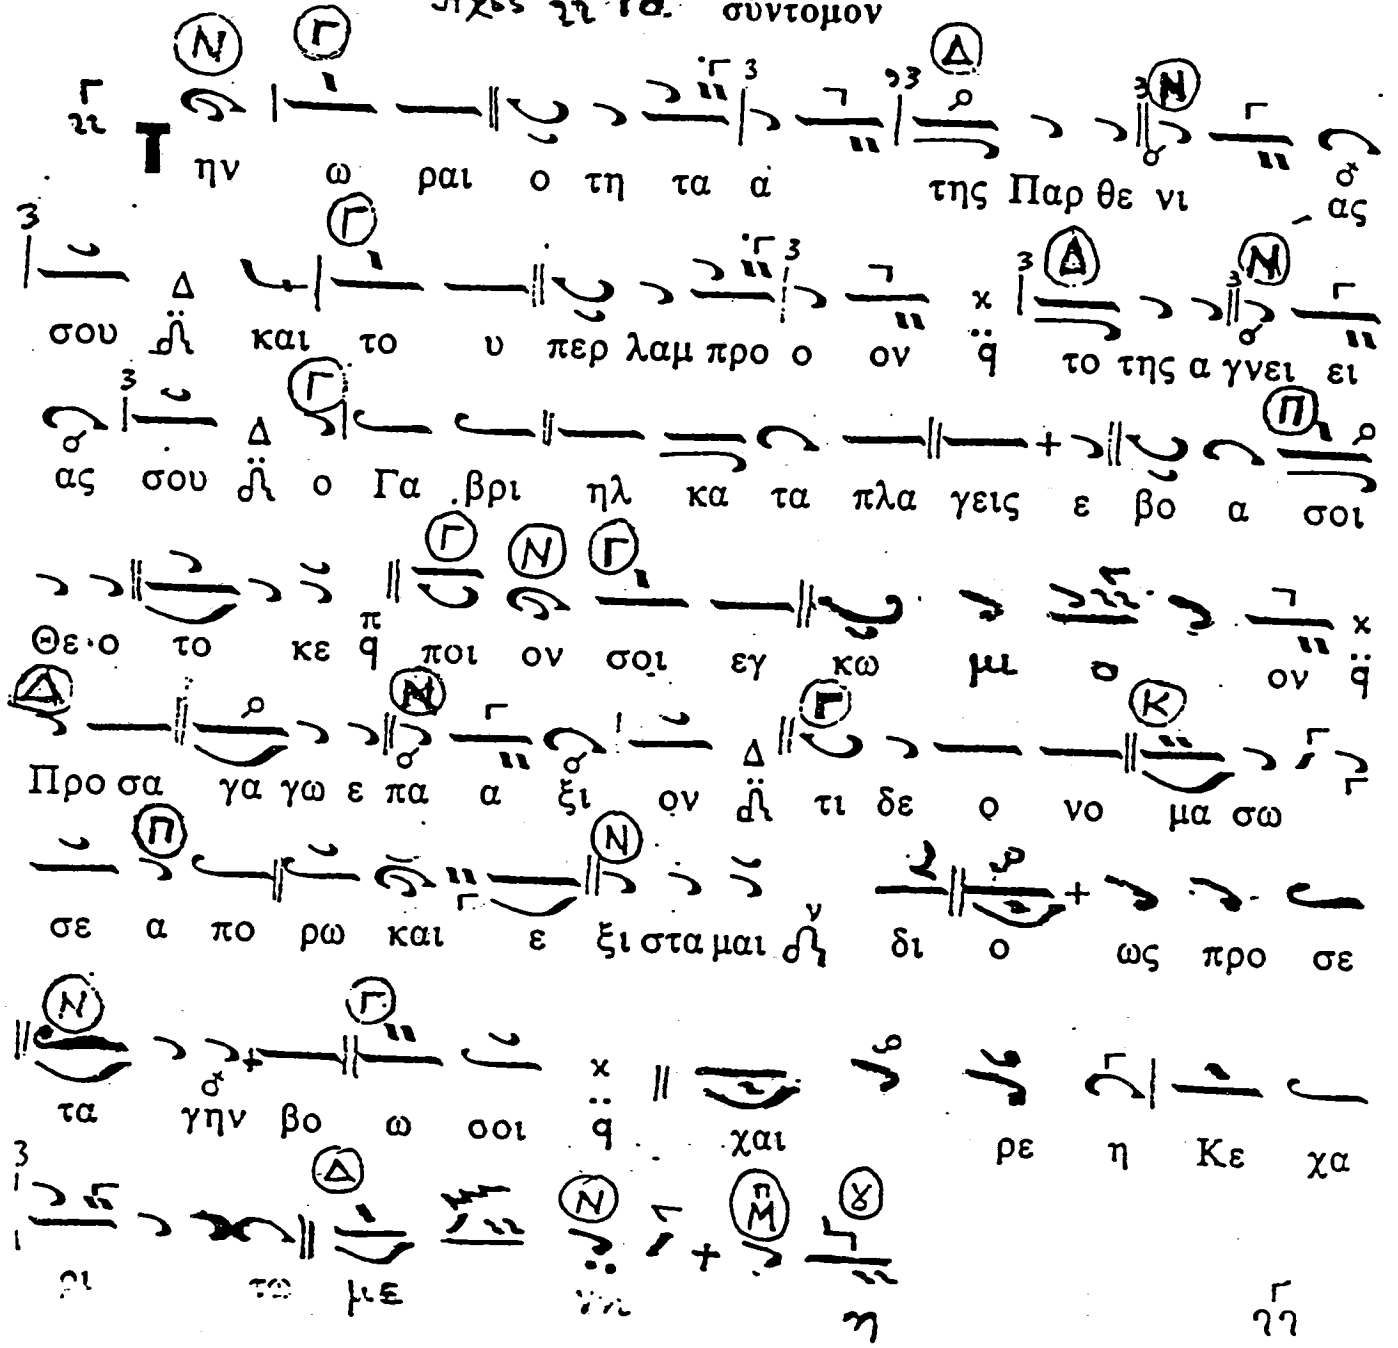 σύντομον
Την ω ραι ο τη τα α της Παρ θε νι ας
σου Δ και το υ περ λαμ προ ο ον χ q το της α γνει ει
ας σου Δ ο Γα βρι ηλ κα τα πλα γεις ε βο α σοι
Θε ο το κε π q ποι ον σοι εγ κω μι ο ον χ q
Προ σα γα γω ε πα α ξι ον Δ τι δε ο νο μα σω
σε α πο ρω και ε ξι στα μαι ν δι ο ως προ σε
τα γην βο ω σοι χ q χαι ρε η Κε χα
ρι τω με νη η